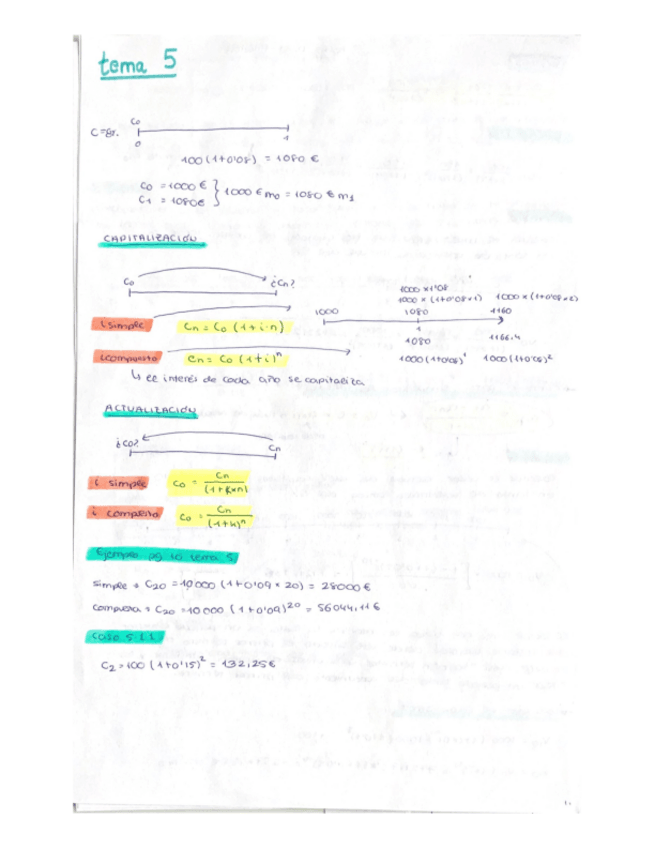 tema 5
C0
C=8%.
0
1
100 (1+0'08) = 1080 €
C0 = 1000 €
C1 = 1080€
1000 € m0 = 1080 € m1
CAPITALIZACIÓN
C0 ¿Cn?
i simple Cn = C0 (1+i·n)
i compuesto Cn = C0 (1+i)^n
↳ el interés de cada año se capitaliza
1000 x 1'08
1000 x (1+0'08x1) 1000 x (1+0'08x2)
1000 1080 1160
1
1080 1166.4
1000 (1+0'08)^1 1000 (1+0'08)^2
ACTUALIZACIÓN
¿C0? Cn
i simple C0 = Cn / (1+k×n)
i compuesto C0 = Cn / (1+k)^n
Ejemplo pg 10 tema 5
Simple → C20 = 10000 (1+0'09 x 20) = 28000 €
Compuesta → C20 = 10000 (1+0'09)^20 = 56044,11 €
Caso 5.1.1
C2 = 100 (1+0'15)^2 = 132,25€